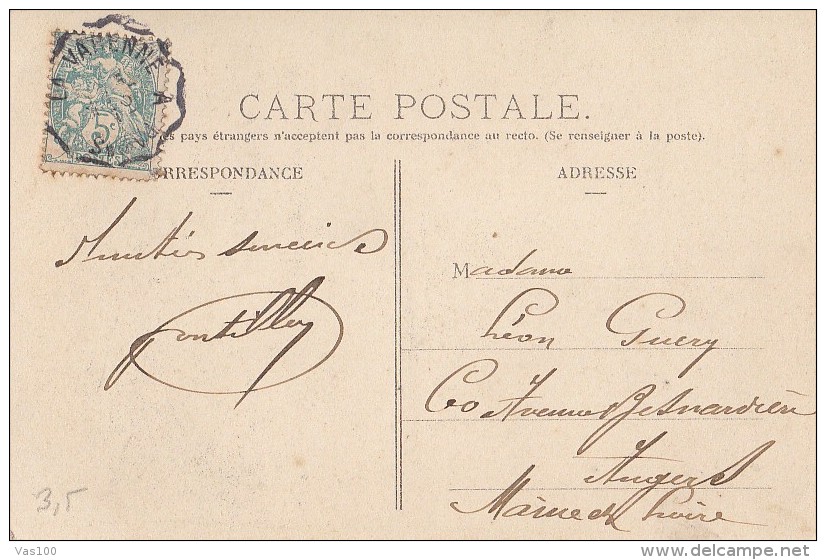 LA VARENNE A
5
POSTES
CARTE POSTALE.
pays étrangers n'acceptent pas la correspondance au recto. (Se renseigner à la poste).
RRESPONDANCE
ADRESSE
Amitiés sincères
Madame
Léon Guery
60 Avenue Besnardière
Angers
Maine et Loire
3,5
Vas100
delcampe.net